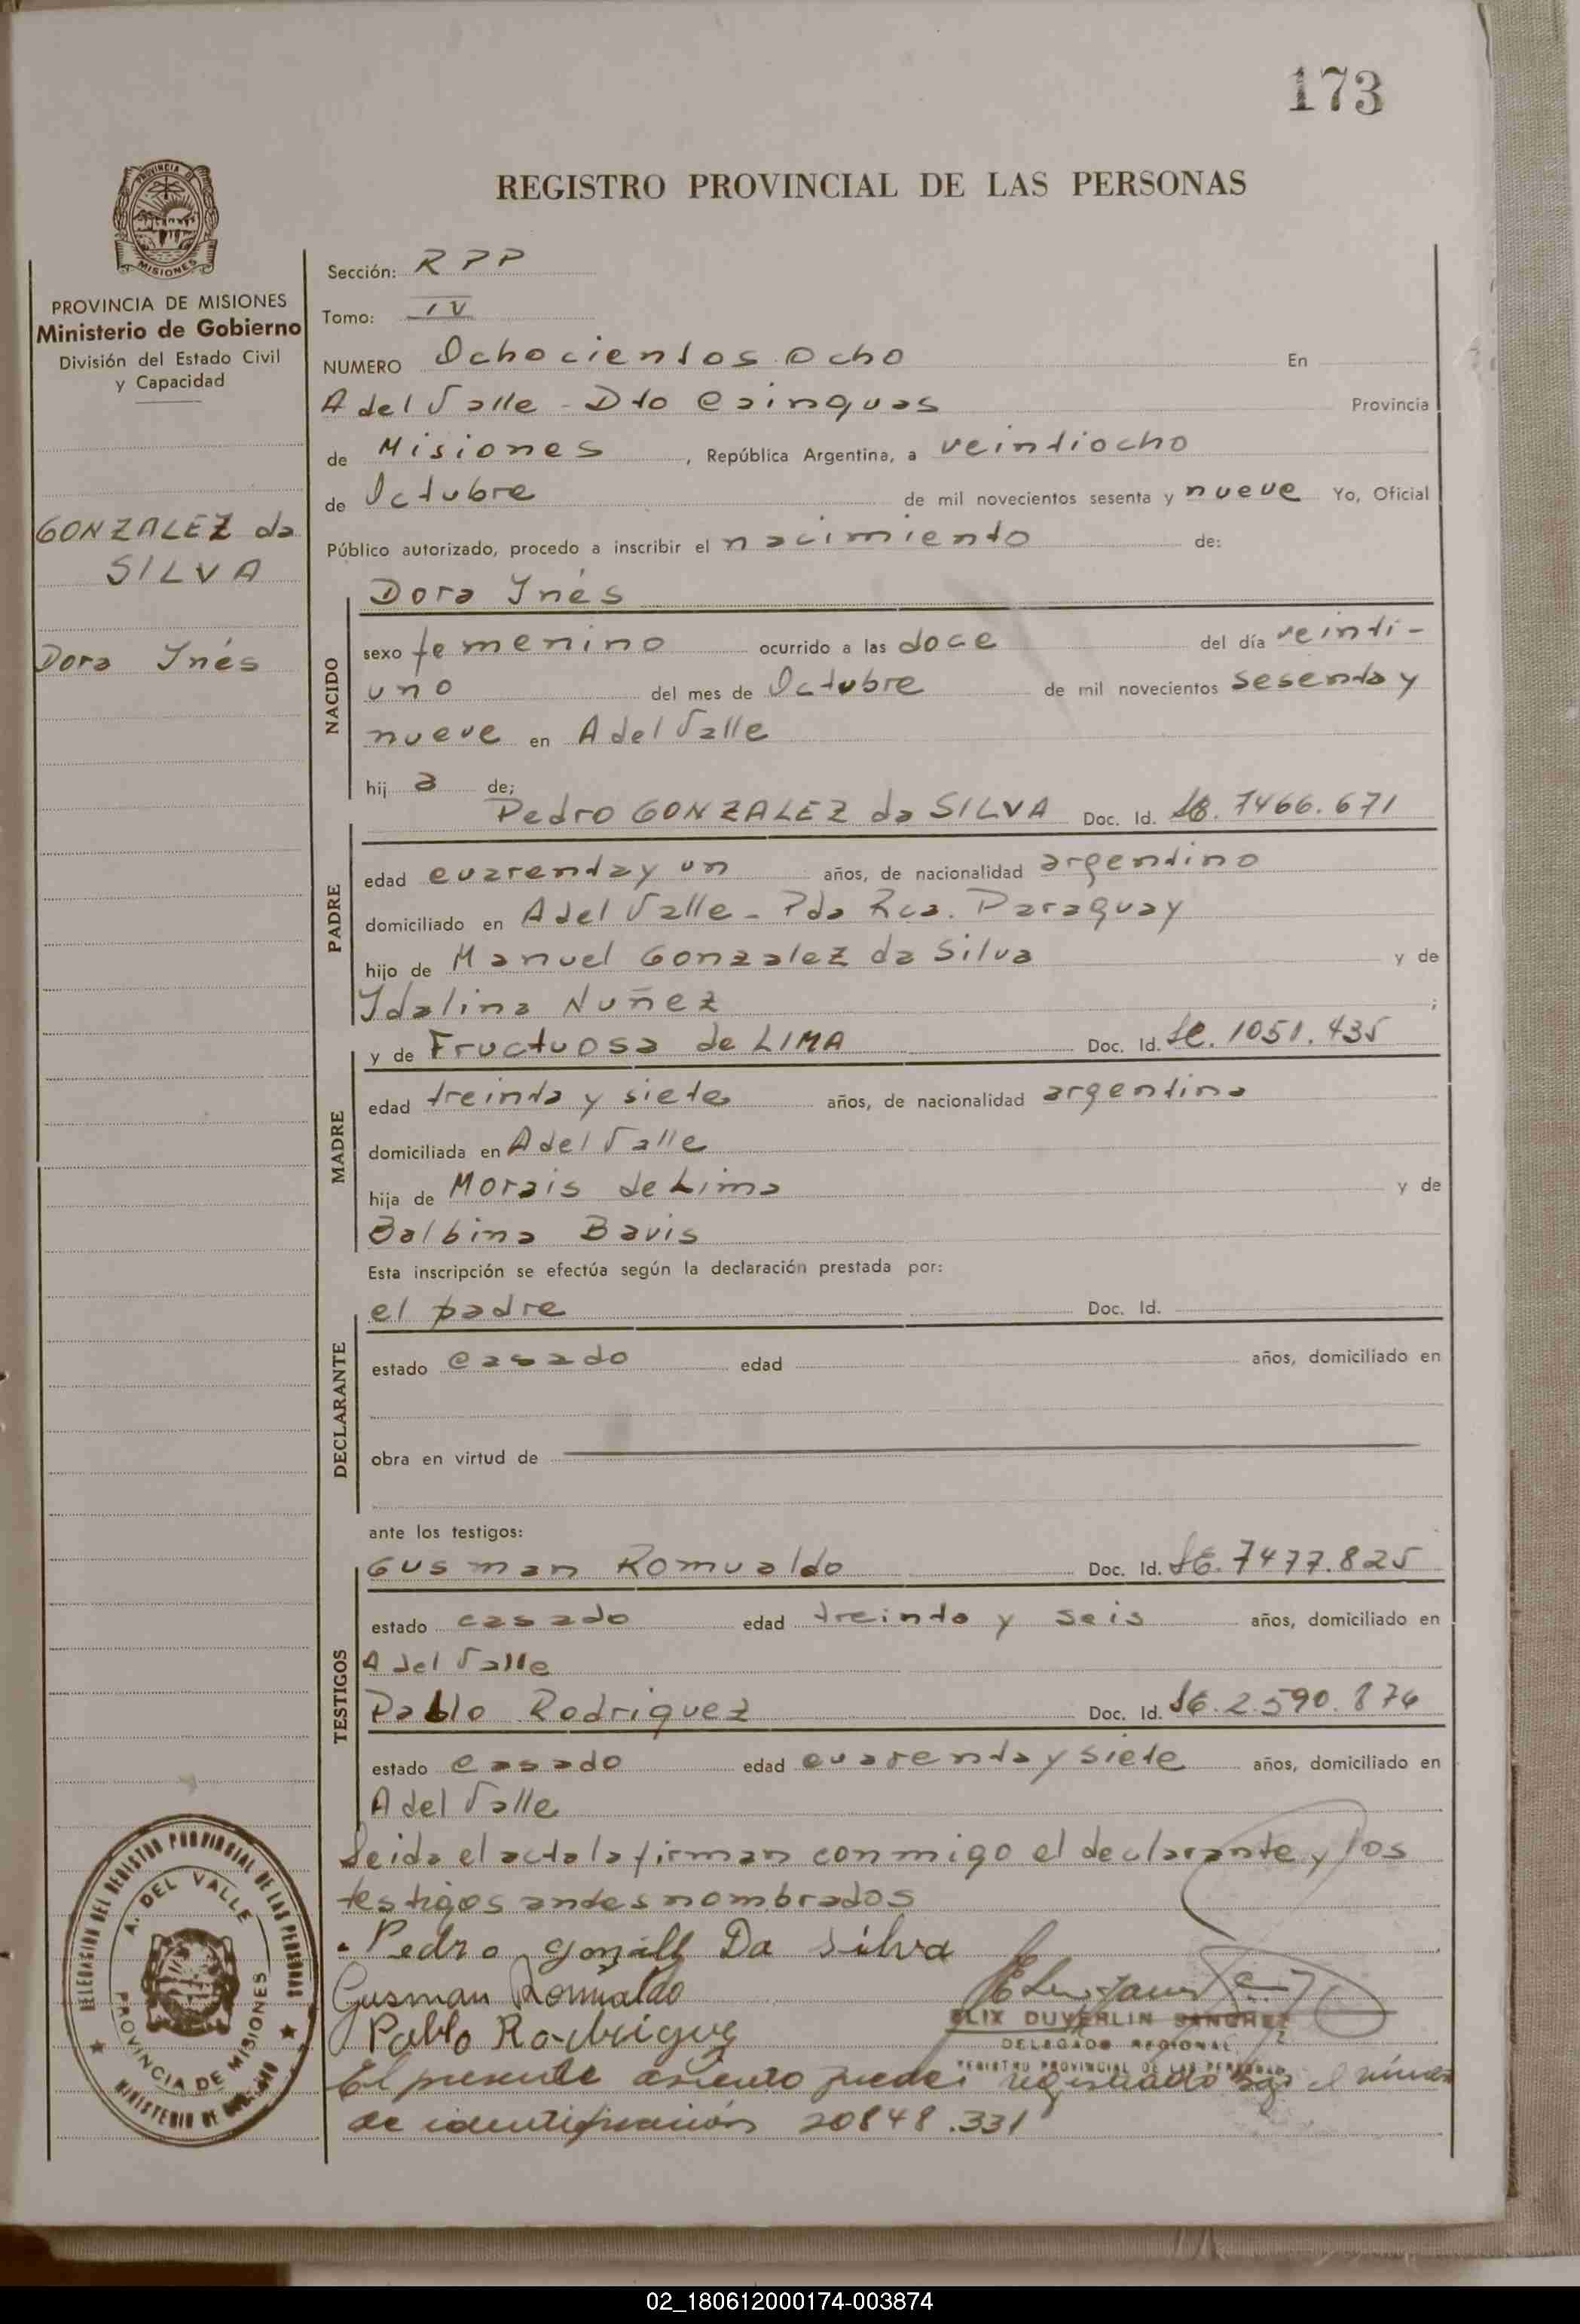 173
REGISTRO PROVINCIAL DE LAS PERSONAS
PROVINCIA DE
MISIONES
PROVINCIA DE MISIONES
Ministerio de Gobierno
División del Estado Civil
y Capacidad
GONZALEZ da
SILVA
Dora Ynés
Sección: RPP
Tomo: IV
NUMERO Ochocientos Ocho En
A del Valle - Dto Cainguas Provincia
de Misiones, República Argentina, a veintiocho
de Octubre de mil novecientos sesenta y nueve Yo, Oficial
Público autorizado, procedo a inscribir el nacimiento de:
NACIDO
Dora Ynés
sexo femenino ocurrido a las doce del día veinti-
uno del mes de Octubre de mil novecientos sesenta y
nueve en A del Valle
hij a de;
PADRE
Pedro GONZALEZ da SILVA Doc. Id. 7466.671
edad cuarenta y un años, de nacionalidad argentino
domiciliado en A del Valle - Pda Rca. Paraguay
hijo de Manuel Gonzalez da Silva y de
Ydalina Nuñez ;
MADRE
y de Fructuosa de LIMA Doc. Id. Lc. 1051.435
edad treinta y siete años, de nacionalidad argentina
domiciliada en A del Valle
hija de Morais de Lima y de
Balbina Bavis
Esta inscripción se efectúa según la declaración prestada por:
DECLARANTE
el padre Doc. Id.
estado casado edad años, domiciliado en
obra en virtud de
ante los testigos:
TESTIGOS
Gusman Romualdo Doc. Id. 7477.825
estado casado edad treinta y seis años, domiciliado en
A del Valle
Pablo Rodriguez Doc. Id. 2.590.876
estado casado edad cuarenta y siete años, domiciliado en
A del Valle
Leida el acta la firman conmigo el declarante y los
testigos antes nombrados
Pedro Da Silva
Gusman Romualdo
Pablo Rodrigue
ELIX DUVERLIN SANCHEZ
DELEGADO REGIONAL
REGISTRO PROVINCIAL DE LAS PERSONAS
El presente asiento registrado bajo el número
de identificación 20848.331
DELEGACION DEL REGISTRO PROVINCIAL DE LAS PERSONAS
A. DEL VALLE
PROVINCIA DE MISIONES
MINISTERIO DE GOBIERNO
02_180612000174-003874